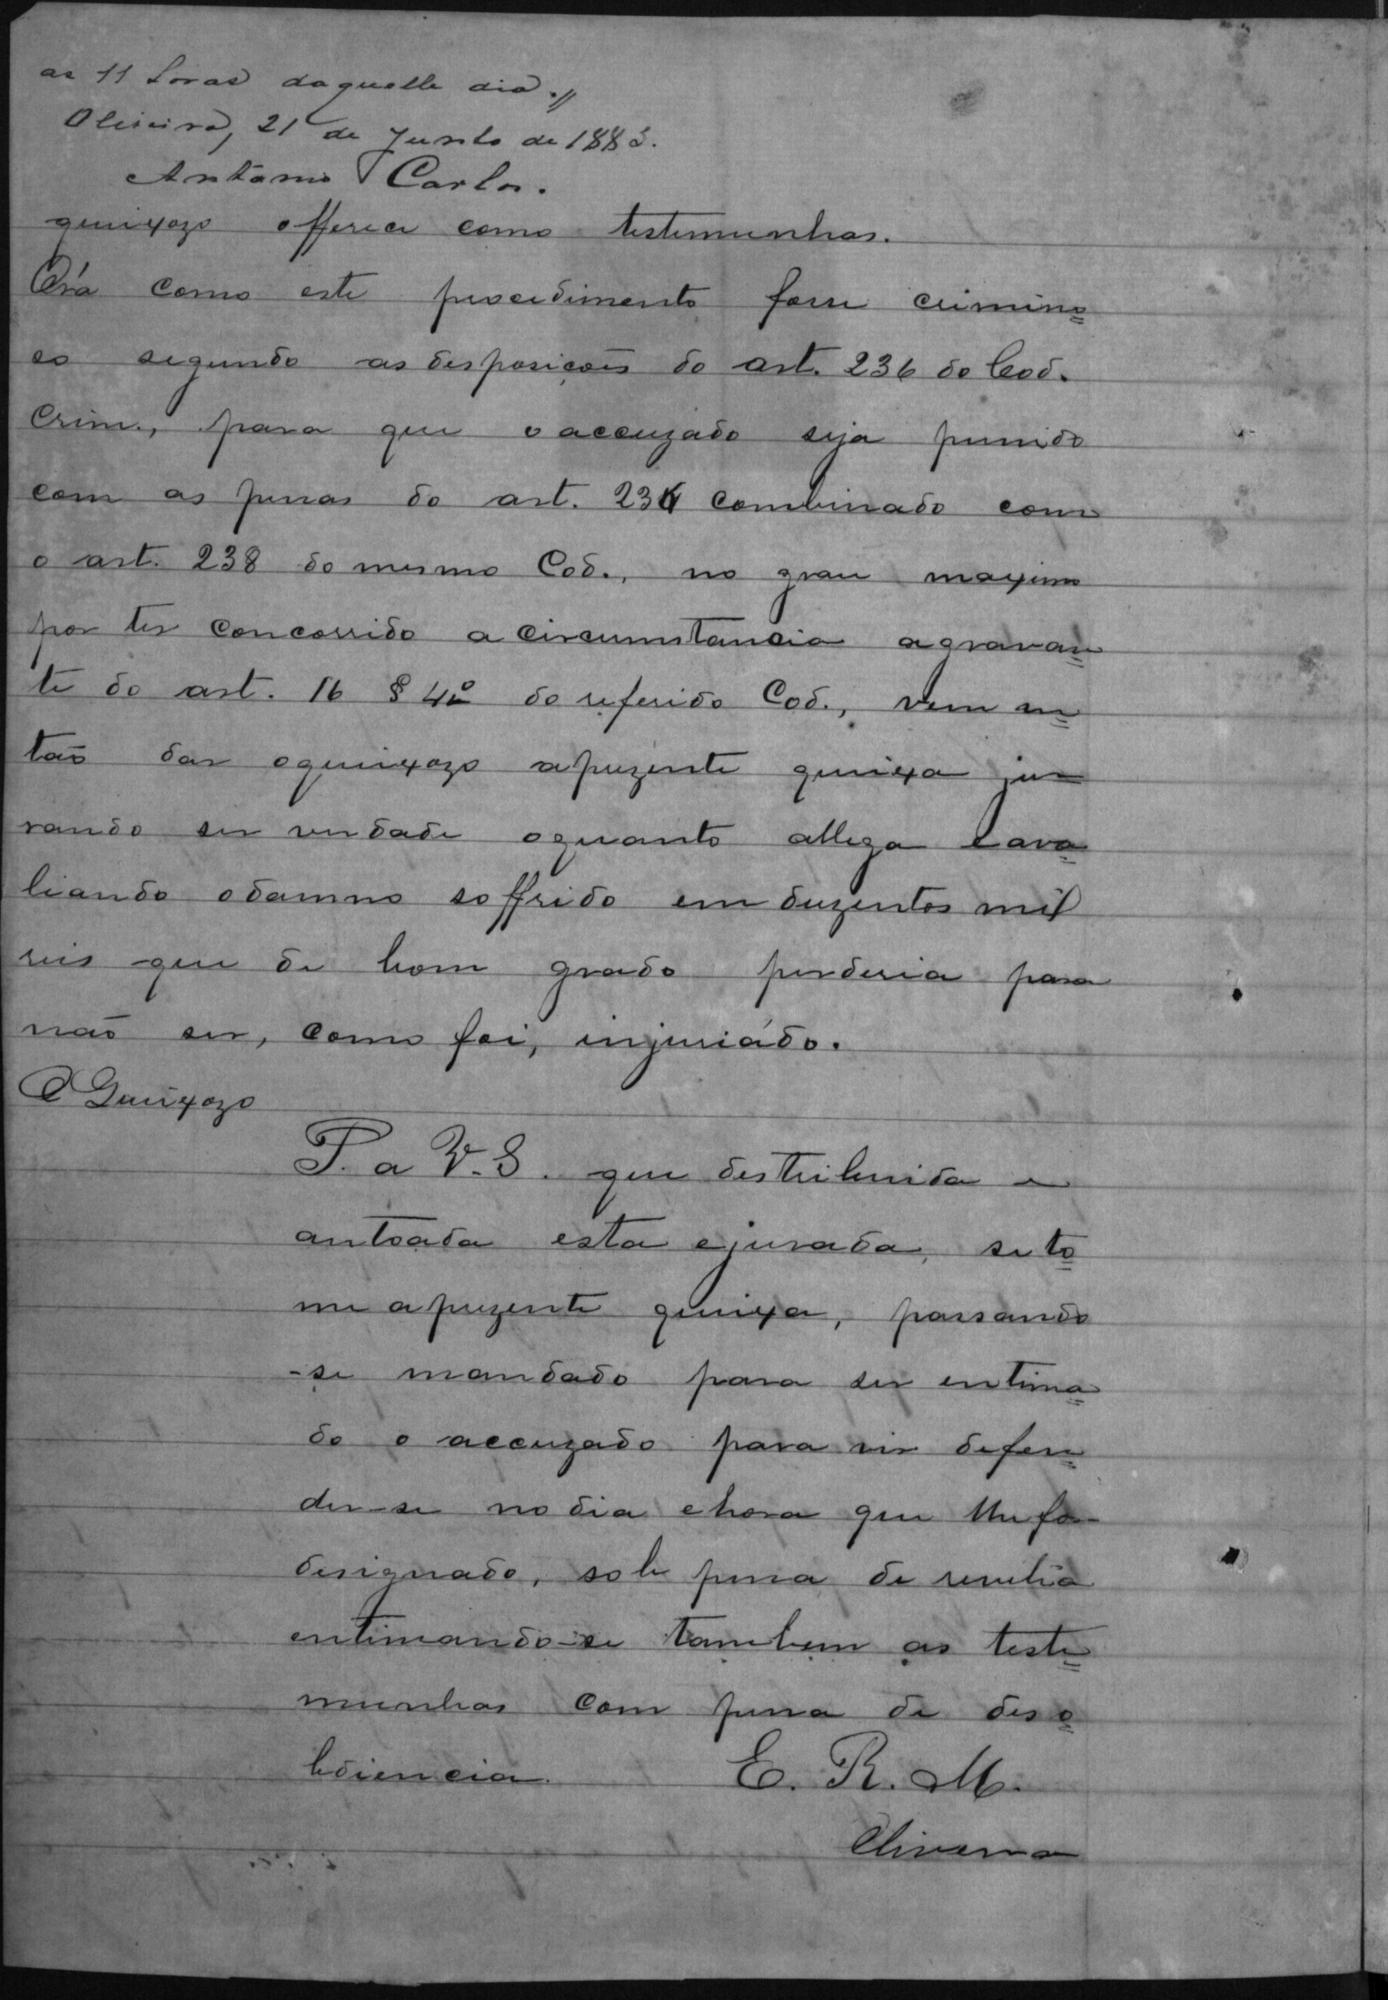 as 11 horas daquelle dia.//
Oliveira, 21 de Junho de 1883.
Antonio Carlos.
queixozo offerece como testemunhas.
Óra como este procedimento fosse crimino=
so segundo as desposições do art. 236 do Cod.
Crim., para que o accuzado seja punido
com as penas do art. 236 combinado com
o art. 238 do mesmo Cod., no grau maximo
por ter concorrido a circumstancia agravan=
te do art. 16 § 4º do referido Cod., vem en=
tão dar o queixozo a prezente queixa ju=
rando ser verdade o quanto allega e ava=
liando o damno soffrido em duzentos mil
reis que de bom grado perderia para
não ser, como foi, injuriádo.
O Queixozo
P. a V. S. que destribuida e
autoada esta e jurada, se to=
me a prezente queixa, passando
-se mandado para ser entima=
do o accuzado para vir defen=
der-se no dia e hora que lhe for
designado, sob pena de revelia
entimando-se tambem as teste=
munhas com pena de deso=
bdiencia. E. R. M.
Oliveira